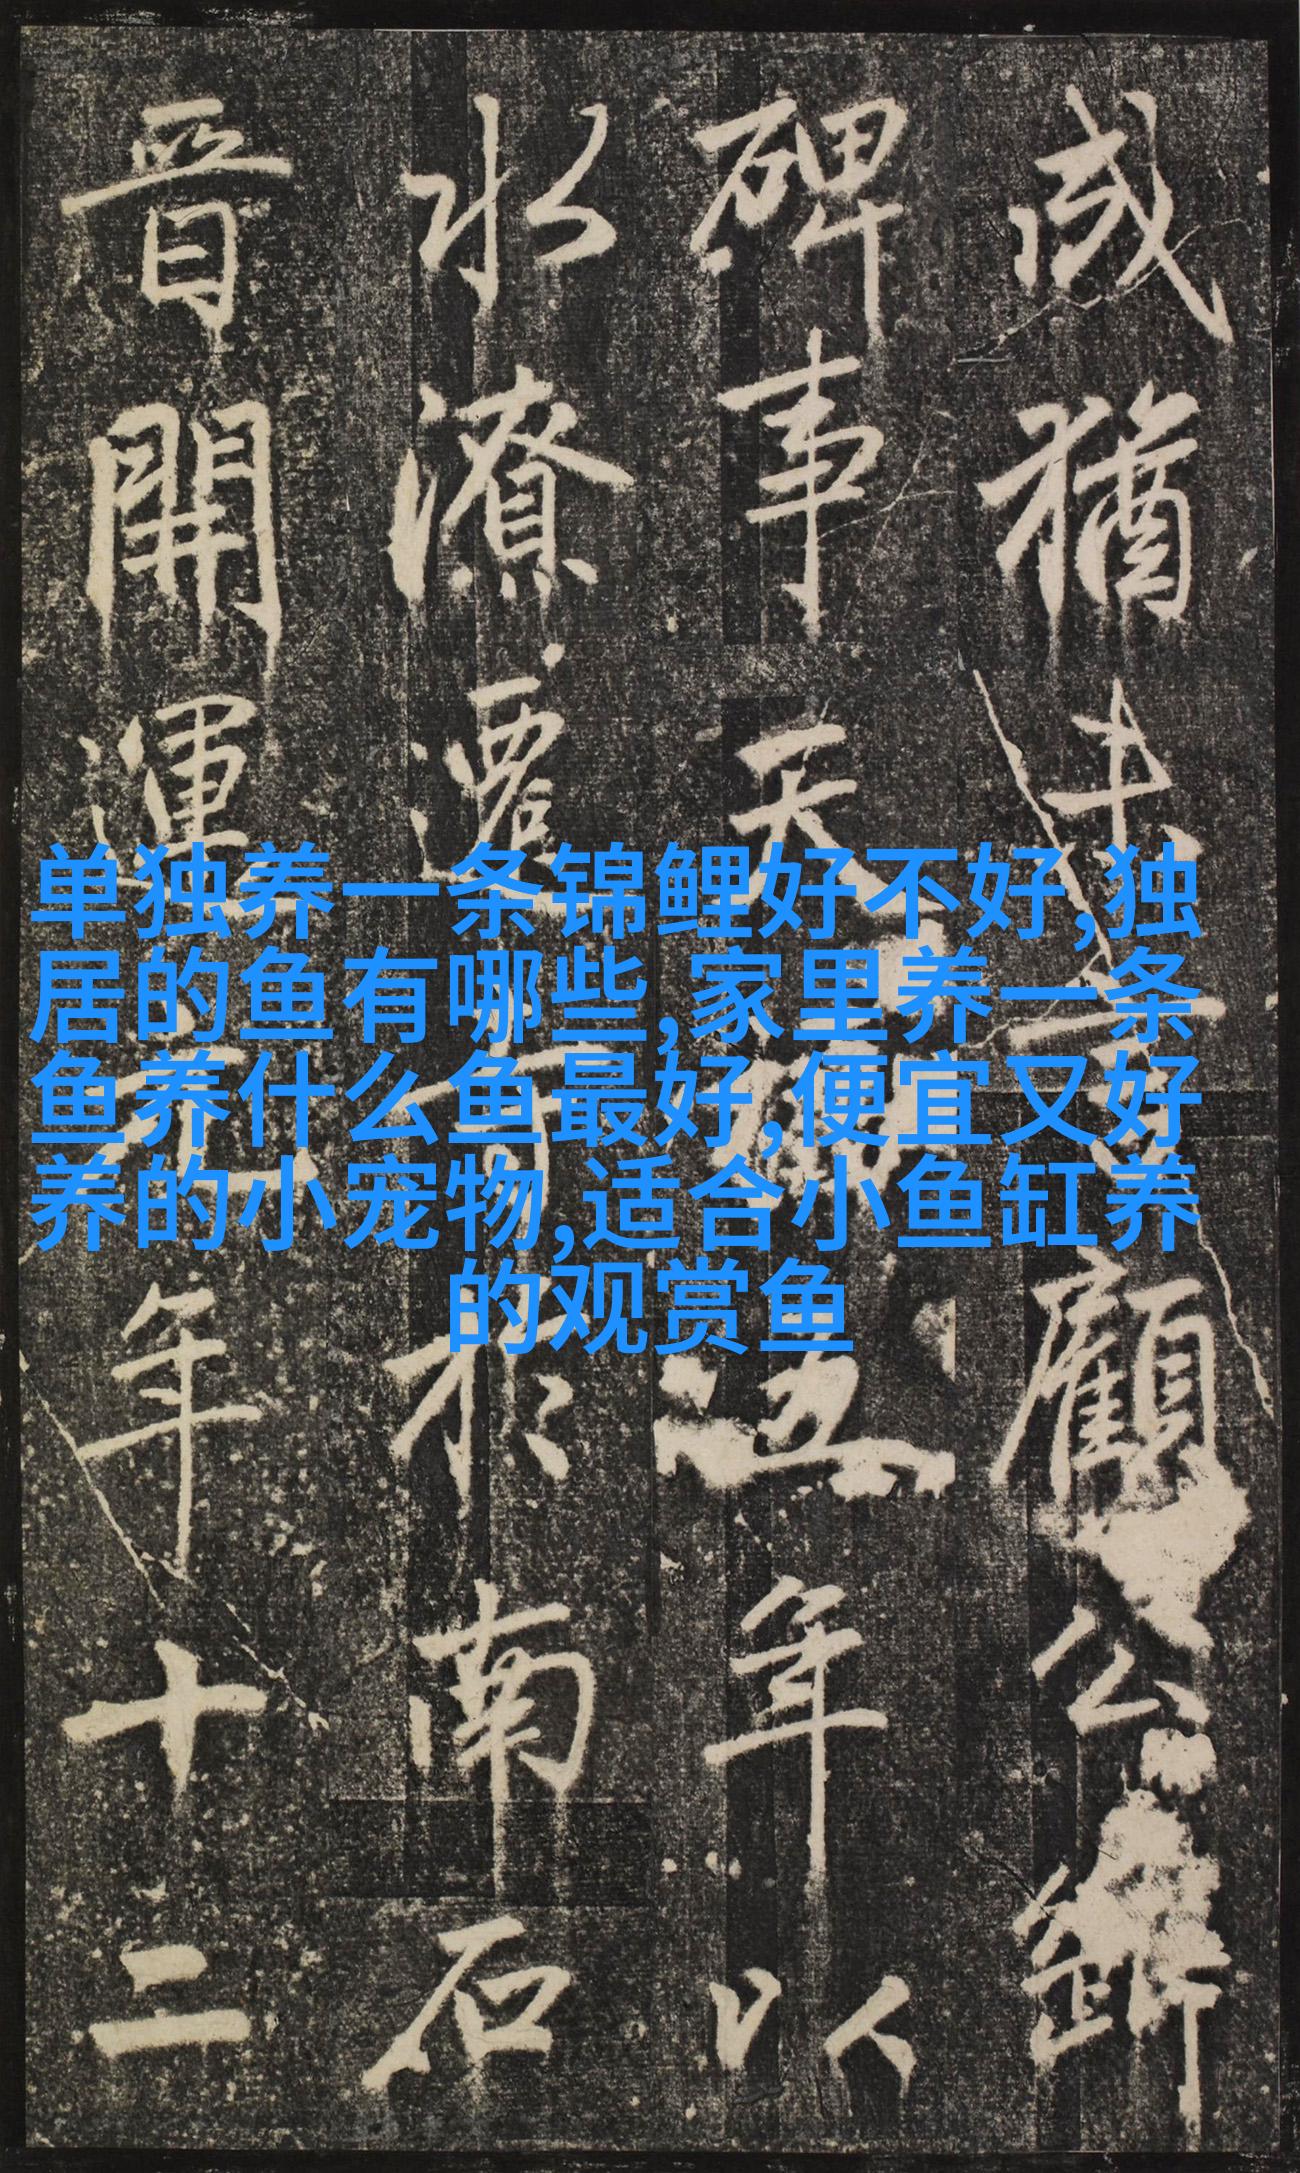 单独养一条锦鲤好不好,独
居的鱼有哪些,家里养一条
鱼养什么鱼最好,便宜又好
养的小宠物,适合小鱼缸养
的观赏鱼
猶顧公
碑事天五年以
水潦遷於南石
晉開運年十二